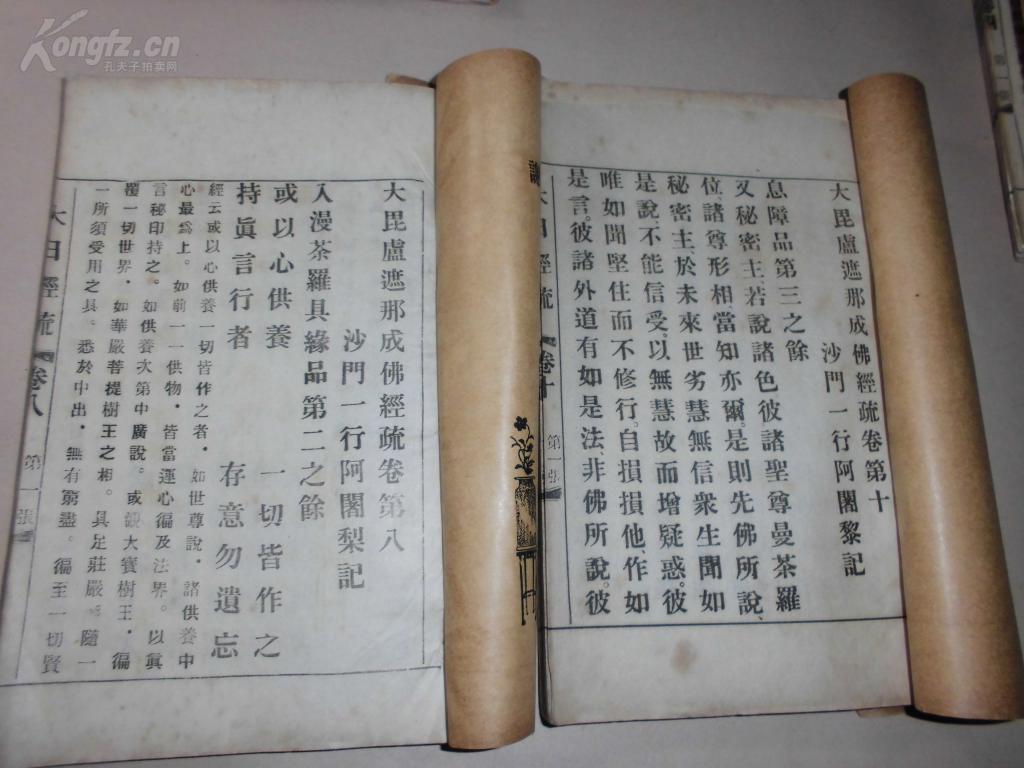 Kongfz.cn
孔夫子拍卖网
大毘盧遮那成佛經疏卷第十
沙門一行阿闍黎記
息障品第三之餘
又秘密主、若說諸色彼諸聖尊曼荼羅
位、諸尊形相當知亦爾。是則先佛所說、
秘密主於未來世劣慧無信衆生聞如
是說、不能信受。以無慧故而增疑惑。彼
唯如聞堅住而不修行。自損損他、作如
是言。彼諸外道有如是法、非佛所說。彼
大日經疏
卷十
第一張
大毘盧遮那成佛經疏卷第八
沙門一行阿闍梨記
入漫茶羅具緣品第二之餘
或以心供養 一切皆作之
持眞言行者 存意勿遺忘
經云或以心供養一切皆作之者。如世尊說。諸供養中
心最爲上。如前一一供物。皆當運心徧及法界。以眞
言秘印持之。如供養次第中廣說。或觀大寶樹王。徧
覆一切世界。如華嚴菩提樹王之相。具足莊嚴。隨一
一所須受用之具。悉於中出。無有窮盡。徧至一切賢
大日經疏
卷八
第一張